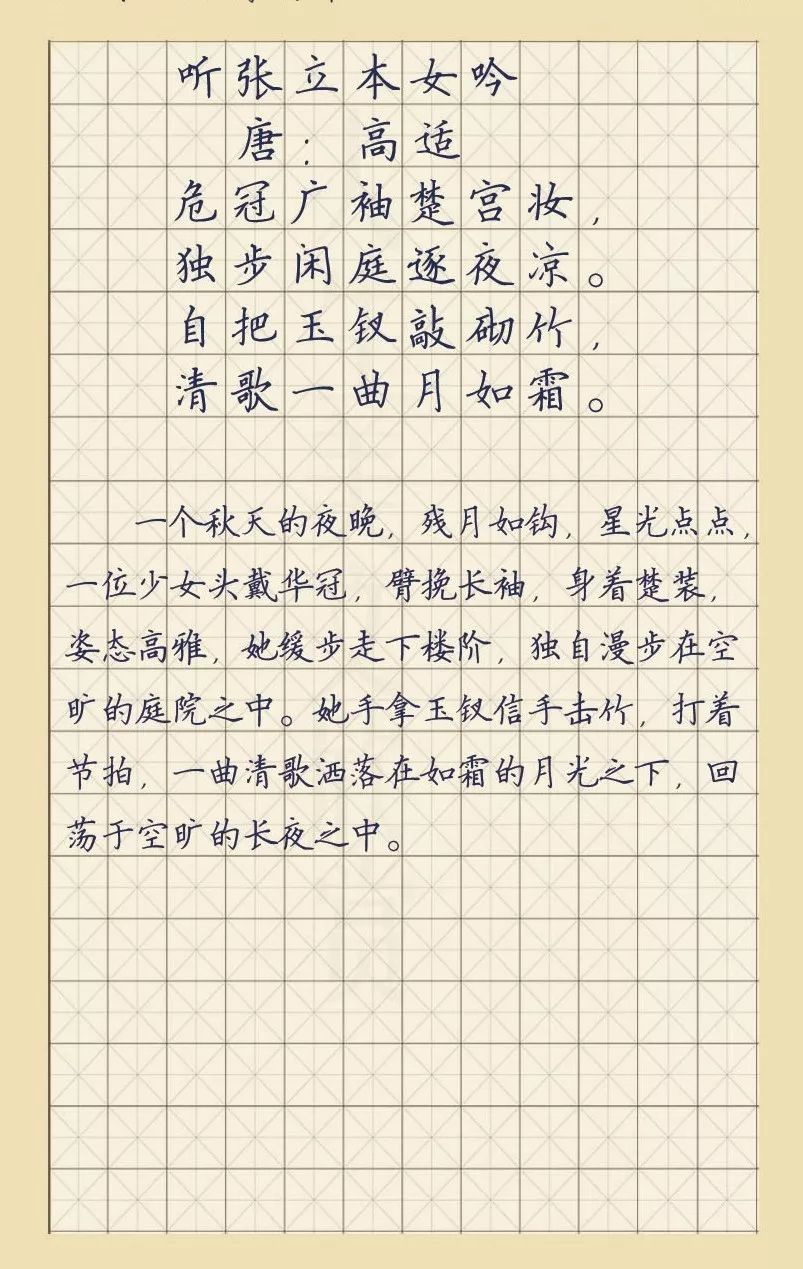 听张立本女吟
唐：高适
危冠广袖楚宫妆，
独步闲庭逐夜凉。
自把玉钗敲砌竹，
清歌一曲月如霜。
一个秋天的夜晚，残月如钩，星光点点，
一位少女头戴华冠，臂挽长袖，身着楚装，
姿态高雅，她缓步走下楼阶，独自漫步在空
旷的庭院之中。她手拿玉钗信手击竹，打着
节拍，一曲清歌洒落在如霜的月光之下，回
荡于空旷的长夜之中。